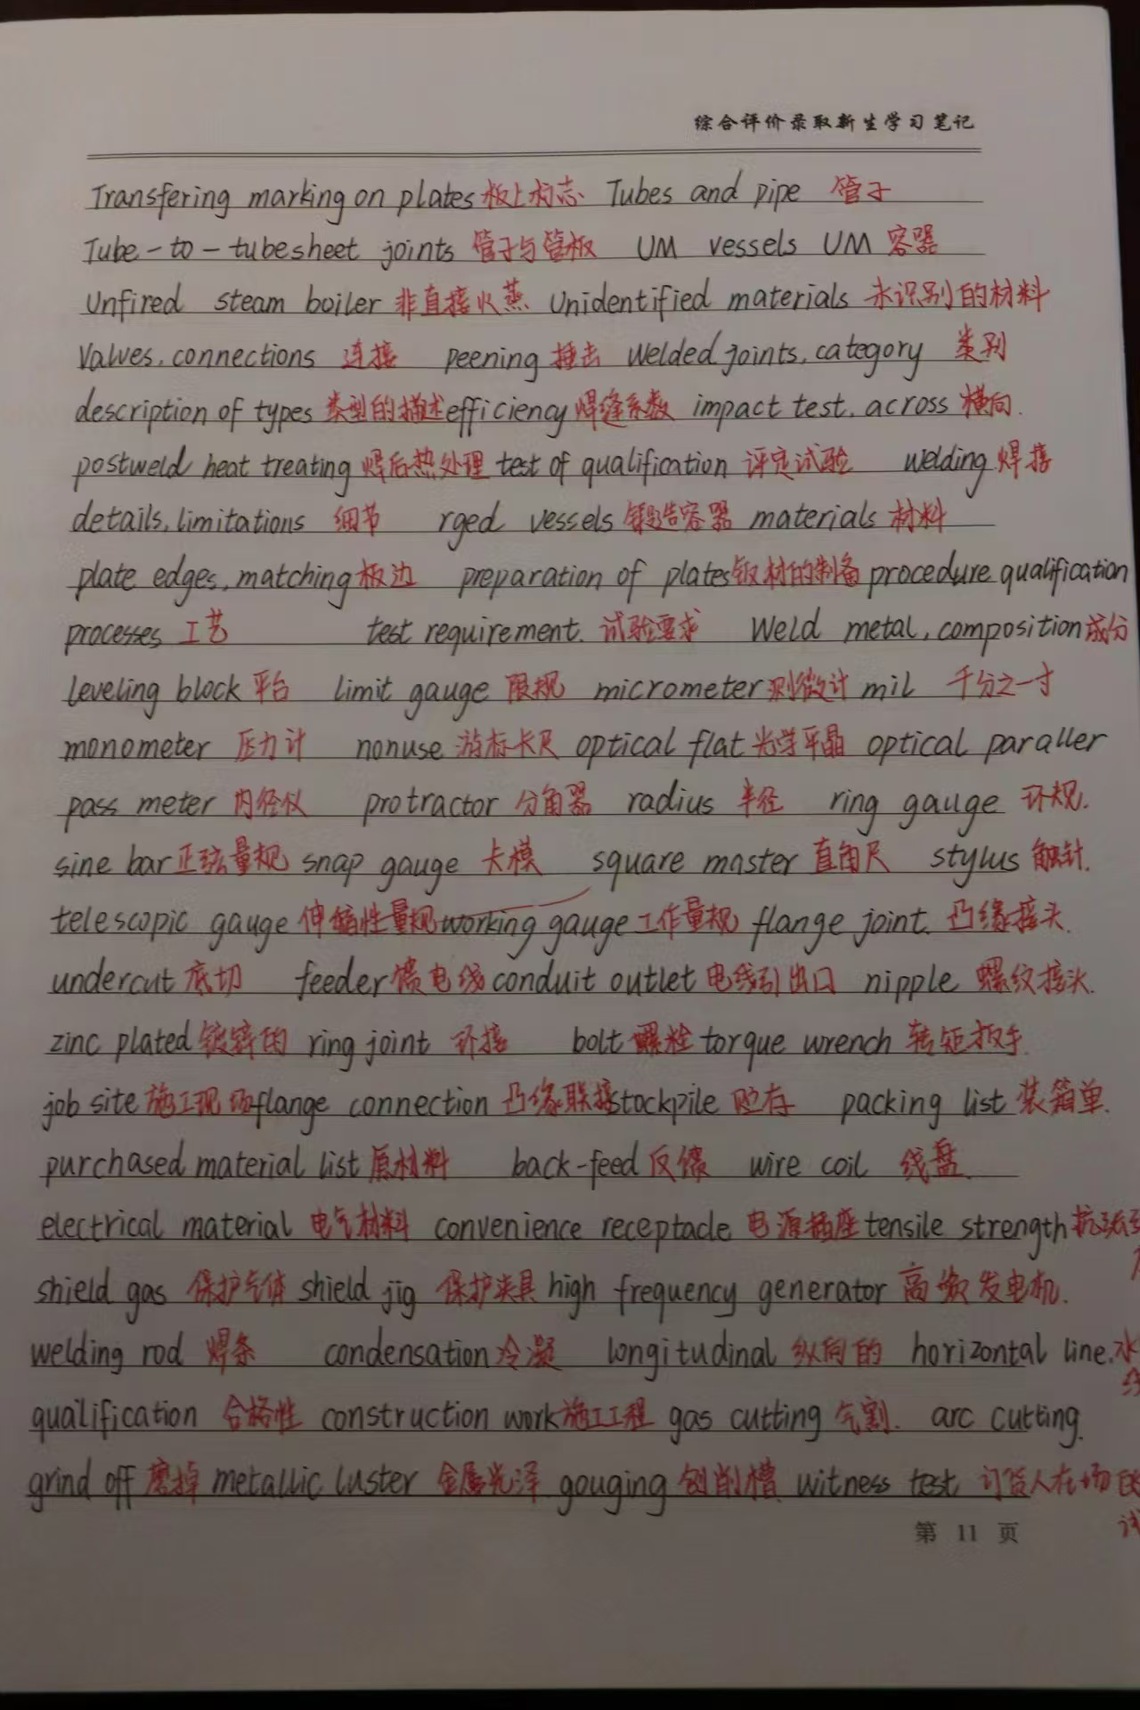 综合评价录取新生学习笔记
Transfering marking on plates 板上标志 Tubes and pipe 管子
Tube-to-tubesheet joints 管子与管板 UM vessels UM 容器
Unfired steam boiler 非直接火蒸 Unidentified materials 未识别的材料
Valves, connections 连接 peening 捶击 Welded joints, category 类别
description of types 类型的描述 efficiency 焊缝系数 impact test. across 横向.
postweld heat treating 焊后热处理 test of qualification 评定试验 welding 焊接
details, limitations 细节 rged vessels 锻造容器 materials 材料
plate edges, matching 板边 preparation of plates 钣材的制备 procedure qualification
processes 工艺 test requirement. 试验要求 Weld metal, composition 成分
leveling block 平台 limit gauge 限规 micrometer 测微计 mil 千分之一寸
monometer 压力计 nonuse 游标卡尺 optical flat 光学平晶 optical paraller
pass meter 内径仪 protractor 分角器 radius 半径 ring gauge 环规.
sine bar 正弦量规 snap gauge 卡模 square master 直角尺 stylus 触针.
telescopic gauge 伸缩性量规 working gauge 工作量规 flange joint. 凸缘接头.
undercut 底切 feeder 馈电线 conduit outlet 电线引出口 nipple 螺纹接头.
zinc plated 镀锌的 ring joint 环接 bolt 螺栓 torque wrench 转矩扳手
job site 施工现场 flange connection 凸缘联接 stockpile 贮存 packing list 装箱单.
purchased material list 原材料 back-feed 反馈 wire coil 线盘
electrical material 电气材料 convenience receptacle 电源插座 tensile strength 抗张强
shield gas 保护气体 shield jig 保护夹具 high frequency generator 高频发电机.
welding rod 焊条 condensation 冷凝 longitudinal 纵向的 horizontal line. 水
qualification 合格性 construction work 施工工程 gas cutting 气割. arc cutting.
grind off 磨掉 metallic luster 金属光泽 gouging 刨削槽 witness test 订货人在场的
试
第 11 页